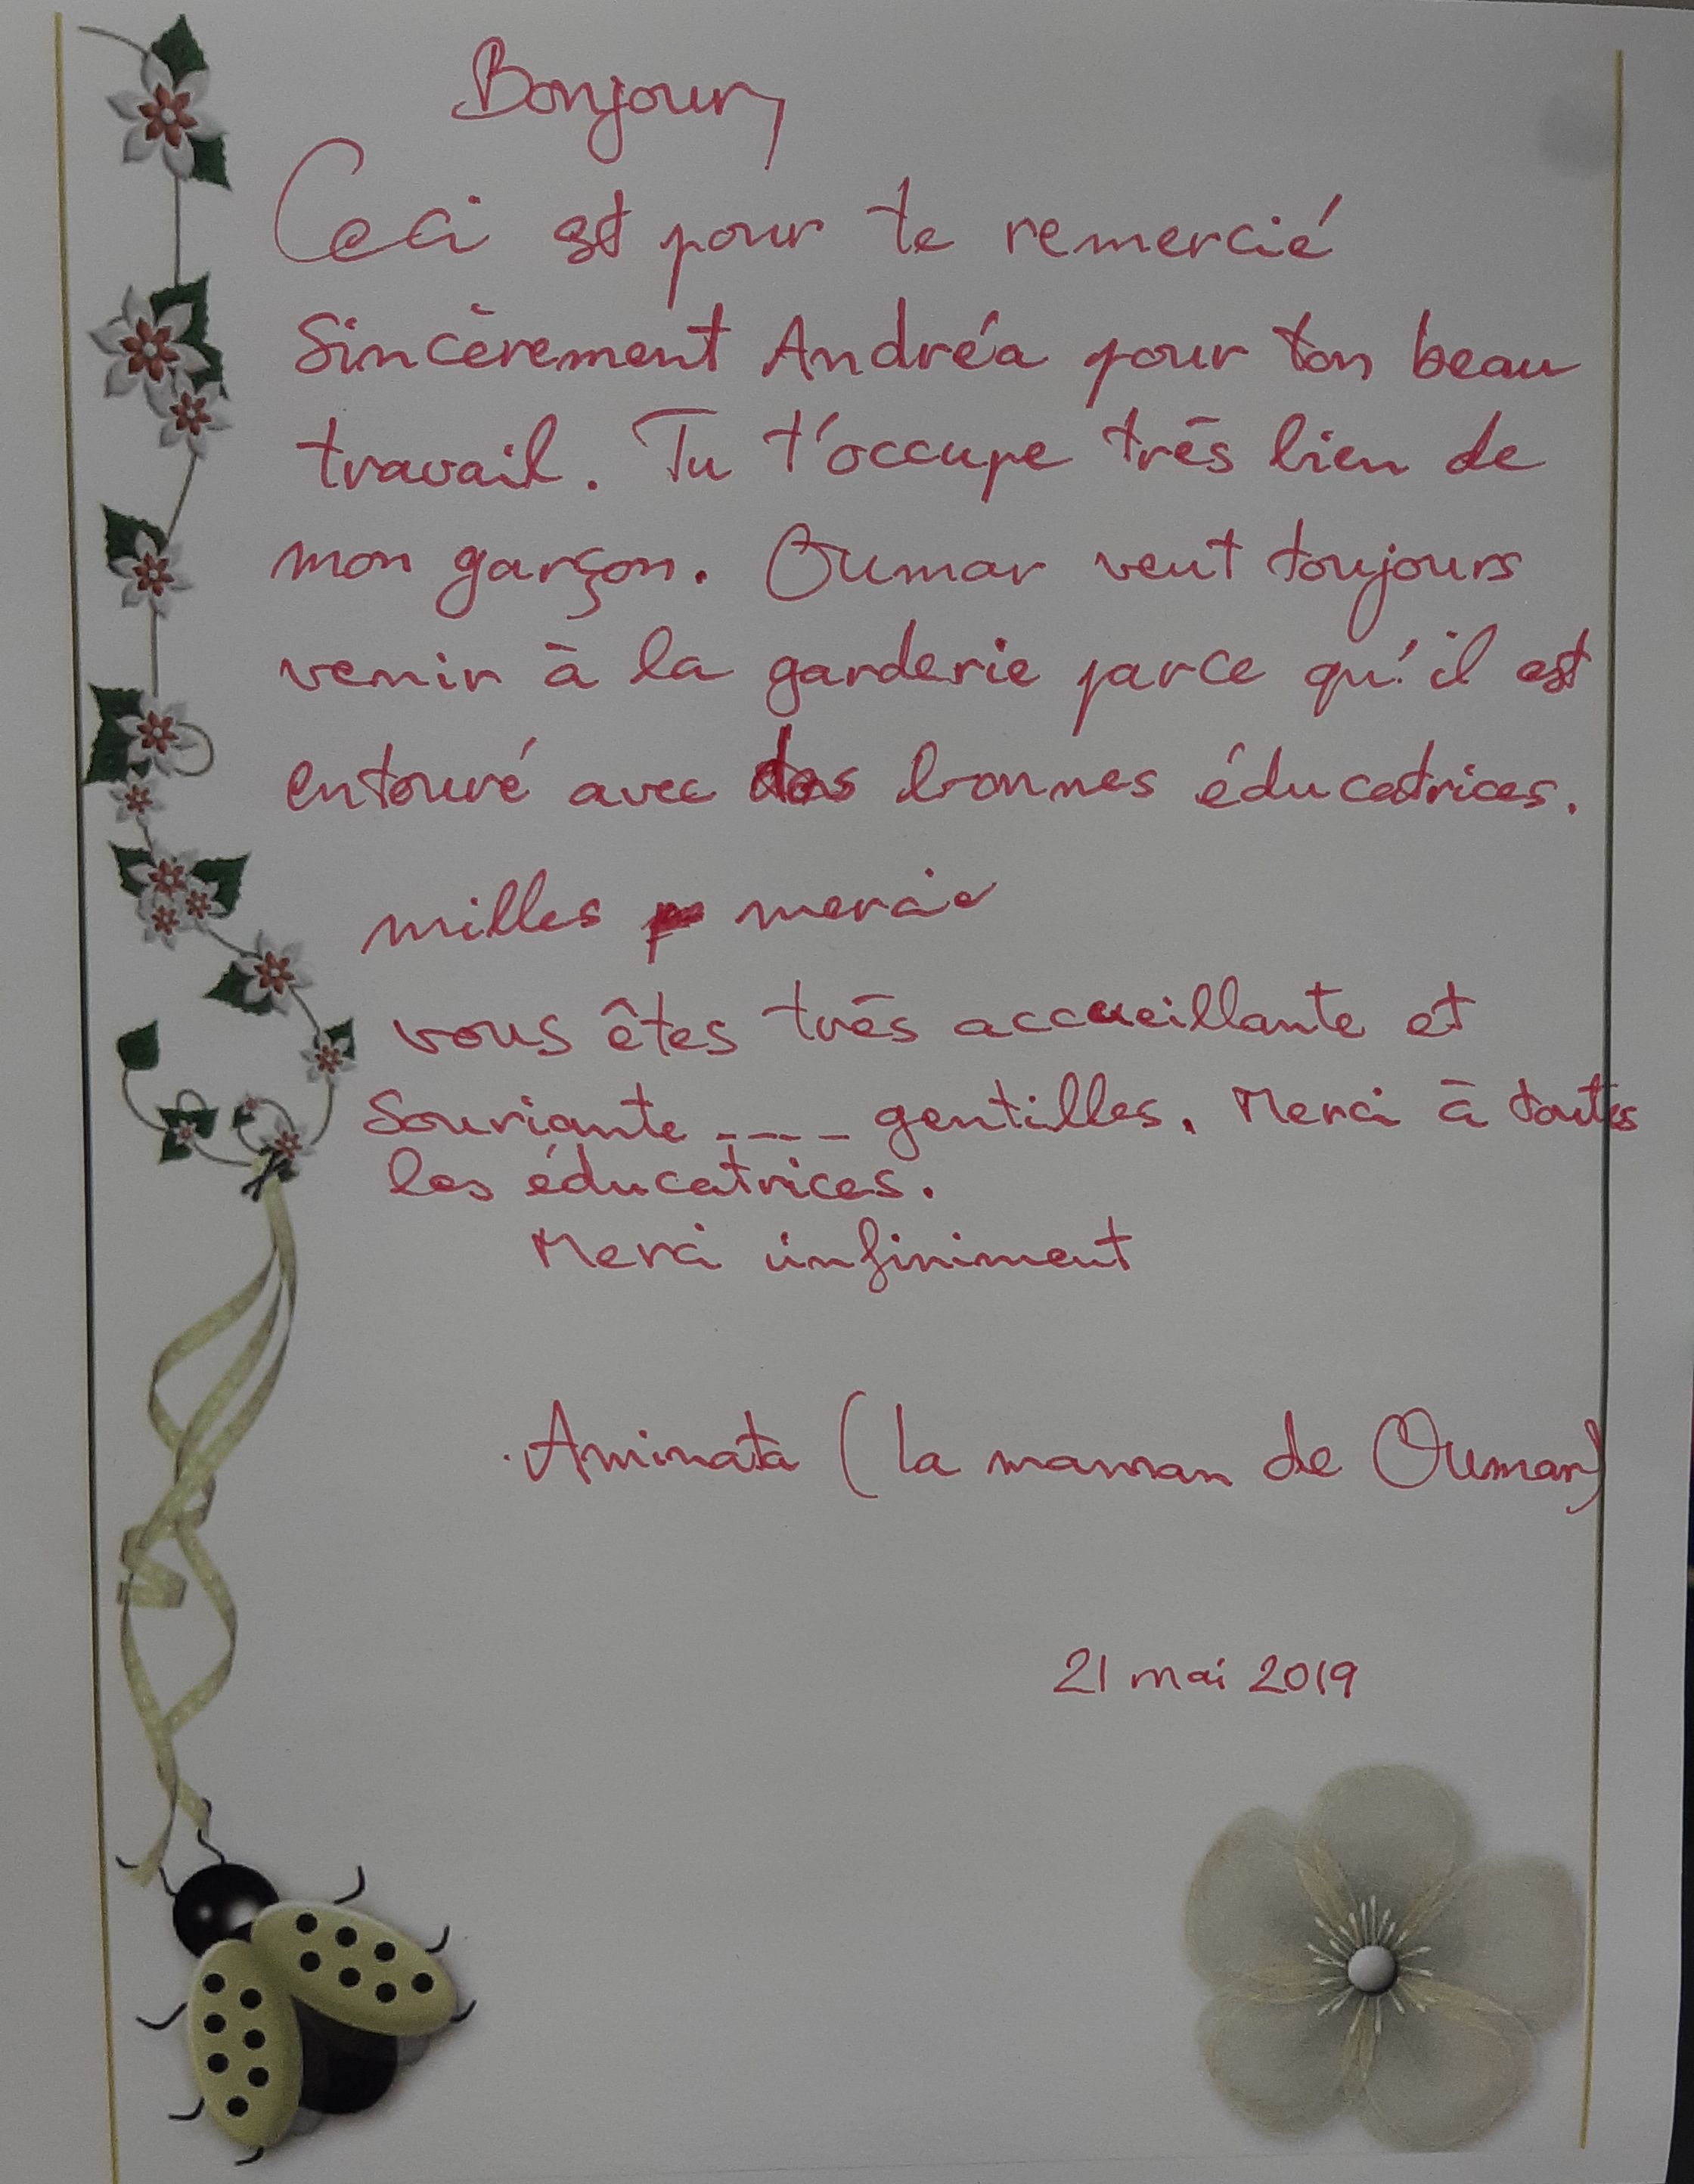 Bonjour,
Ceci est pour te remercié
Sincèrement Andréa pour ton beau
travail. Tu t'occupe très bien de
mon garçon. Oumar veut toujours
venir à la garderie parce qu'il est
entouré avec des bonnes éducatrices.
milles merci
vous êtes très accueillante et
Souriante ---- gentilles. Merci à toutes
les éducatrices.
Merci infiniment
Aminata (la maman de Oumar)
21 mai 2019